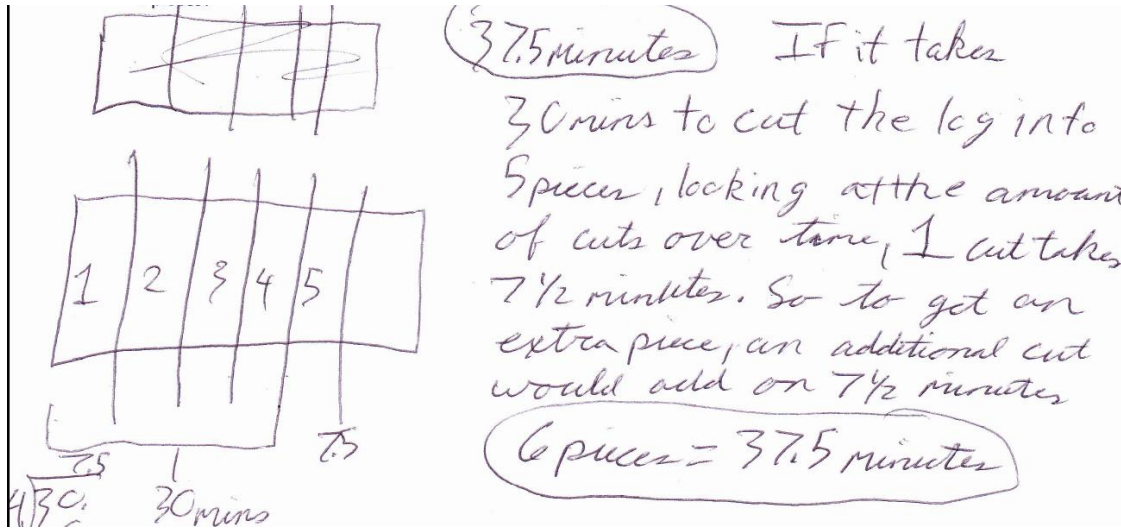 37.5 minutes If it takes
30 mins to cut the log into
5 pieces, looking at the amount
of cuts over time, 1 cut takes
7 1/2 minutes. So to get an
extra piece, an additional cut
would add on 7 1/2 minutes
6 pieces = 37.5 minutes
1 2 3 4 5
7.5 7.5
4)30.
30 mins